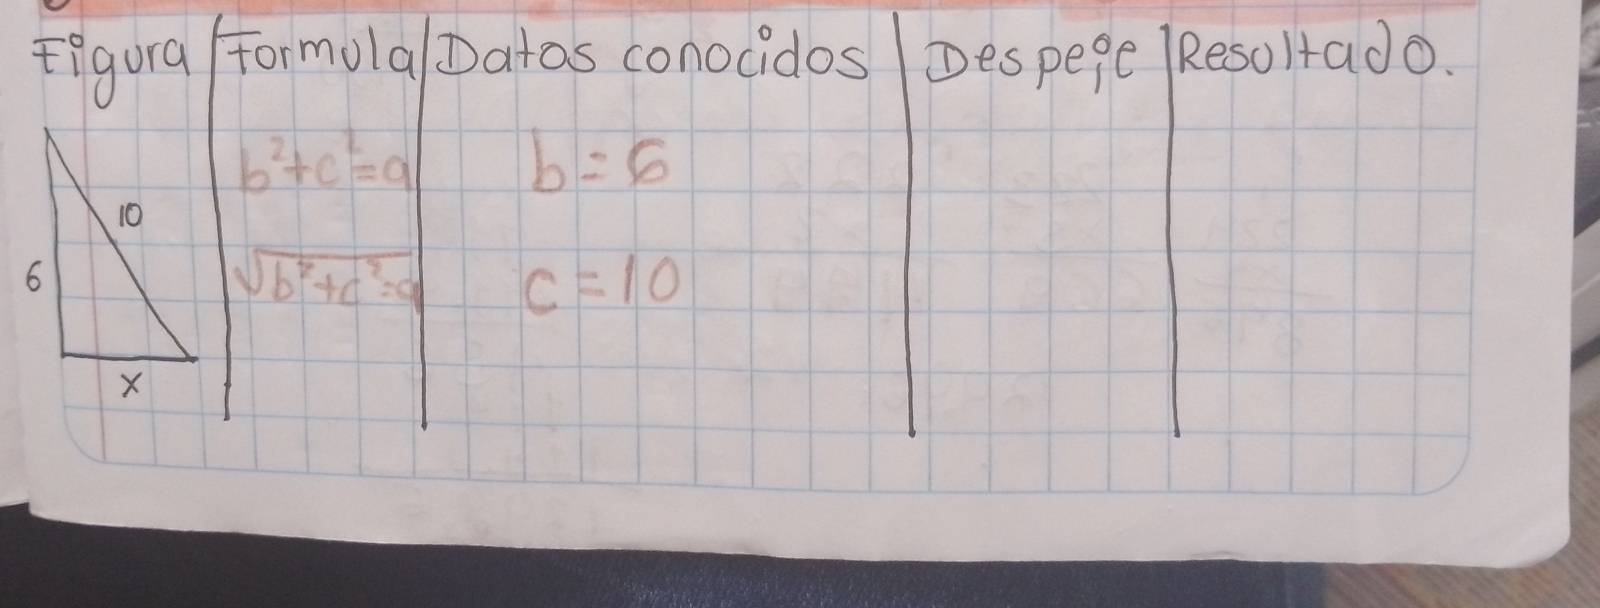 Figura Formula Datos conocidos Despeje Resultado.
b²+c²=a b=6
10
6 √b²+c²=a c=10
x